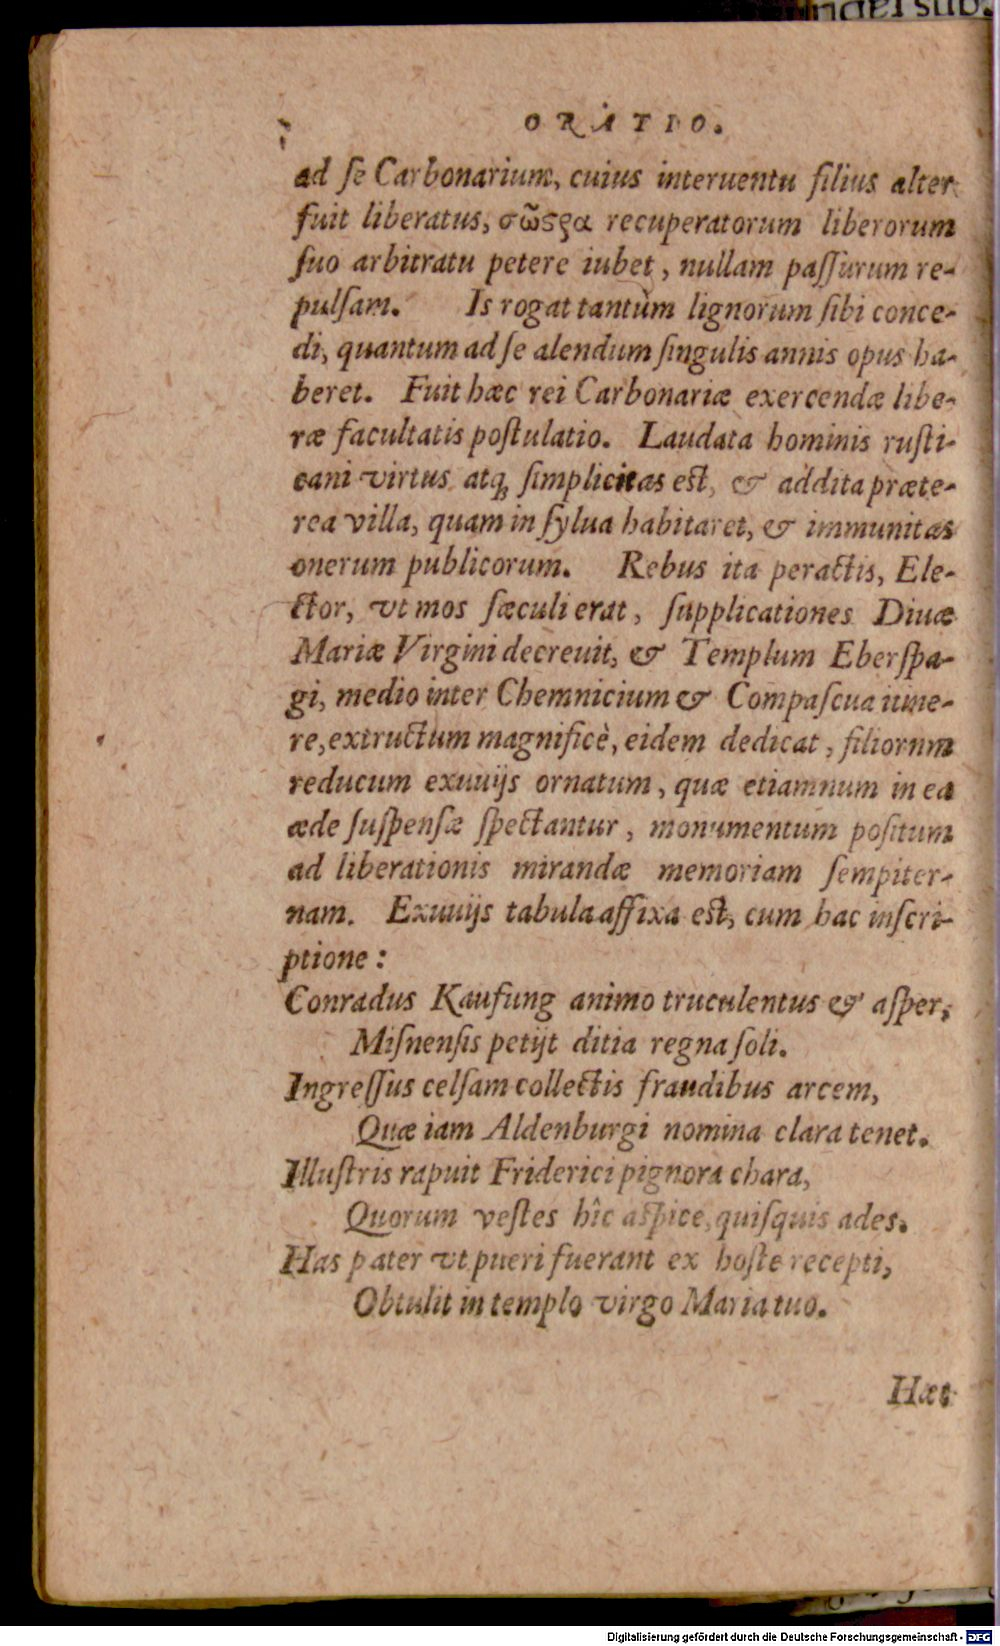 ORATIO.
ad ſe Carbonarium, cuius interuentu filius alter
fuit liberatus, σῶςρα recuperatorum liberorum
ſuo arbitratu petere iubet, nullam paſſurum re-
pulſam. Is rogat tantùm lignorum ſibi conce-
di, quantum ad ſe alendum ſingulis annis opus ha-
beret. Fuit hæc rei Carbonariæ exercendæ libe-
ræ facultatis poſtulatio. Laudata hominis ruſti-
cani virtus atq; ſimplicitas eſt, & addita præte-
rea villa, quam in ſylua habitaret, & immunitas
onerum publicorum. Rebus ita peractis, Ele-
ctor, vt mos ſæculi erat, ſupplicationes Diuæ
Mariæ Virgini decreuit, & Templum Eberſpa-
gi, medio inter Chemnicium & Compaſcua itine-
re, extructum magnificè, eidem dedicat, filiorum
reducum exuuijs ornatum, quæ etiamnum in ea
æde ſuſpenſæ ſpectantur, monumentum poſitum
ad liberationis mirandæ memoriam ſempiter-
nam. Exuuijs tabula affixa eſt, cum hac inſcri-
ptione:
Conradus Kaufung animo truculentus & aſper,
Miſnenſis petijt ditia regna ſoli.
Ingreſſus celſam collectis fraudibus arcem,
Quæ iam Aldenburgi nomina clara tenet.
Illuſtris rapuit Friderici pignora chara,
Quorum veſtes hîc aſpice, quiſquis ades.
Has pater vt pueri fuerant ex hoſte recepti,
Obtulit in templo virgo Maria tuo.
Hæc
Digitalisierung gefördert durch die Deutsche Forschungsgemeinschaft - DFG